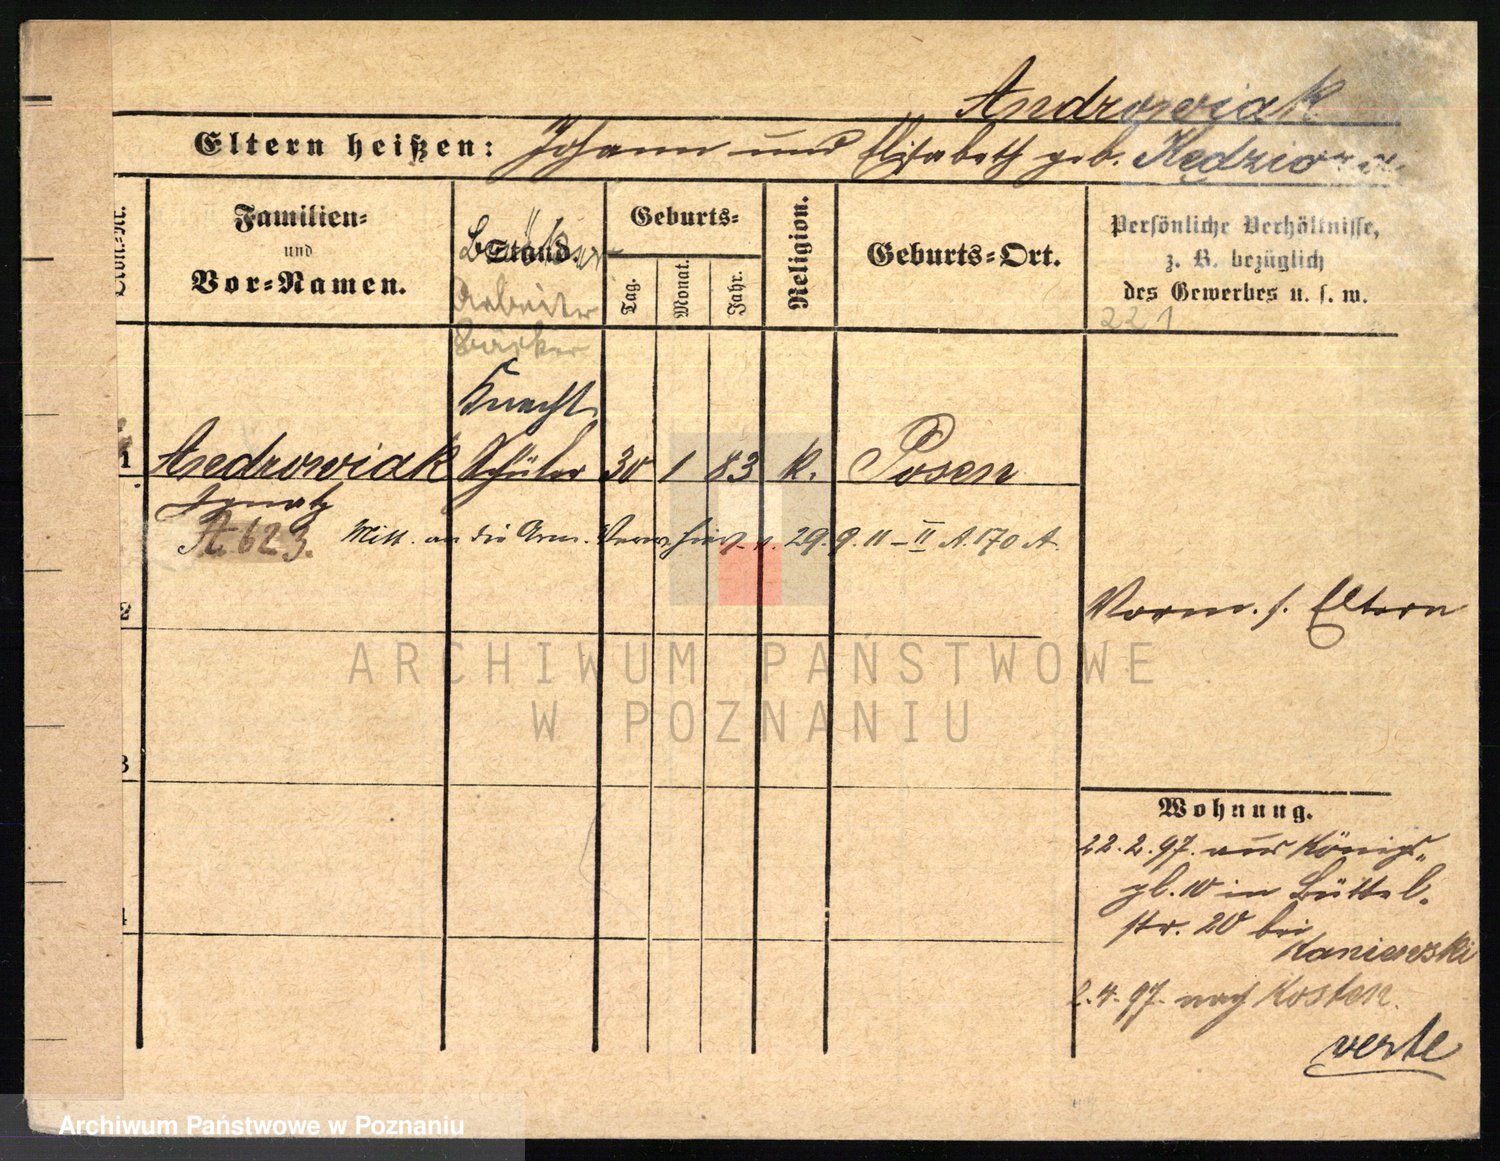 Androwiak
Eltern heißen: Johann und Elisabeth geb. Kędziora
Familien-
und
Vor-Namen.
Stand.
Geburts-
Tag.
Monat.
Jahr.
Religion.
Geburts-Ort.
Persönliche Verhältnisse,
z. B. bezüglich
des Gewerbes u. s. w.
Arbeiter
Bäcker
221
Knecht
1 Androwiak Schüler 30 1 83 k. Posen
Ignatz
A. 623. Mitt. an die Arm. Verw. hier v. 29.9.11 - II A. 170 A.
2
Vorm. s. Eltern
3
Wohnung.
22.2.97. aus Königs-
pl. 10 in Büttel-
str. 20 bei
Kaniewski
4
2.4.97. nach Kosten.
verte
ARCHIWUM PAŃSTWOWE
W POZNANIU
Archiwum Państwowe w Poznaniu